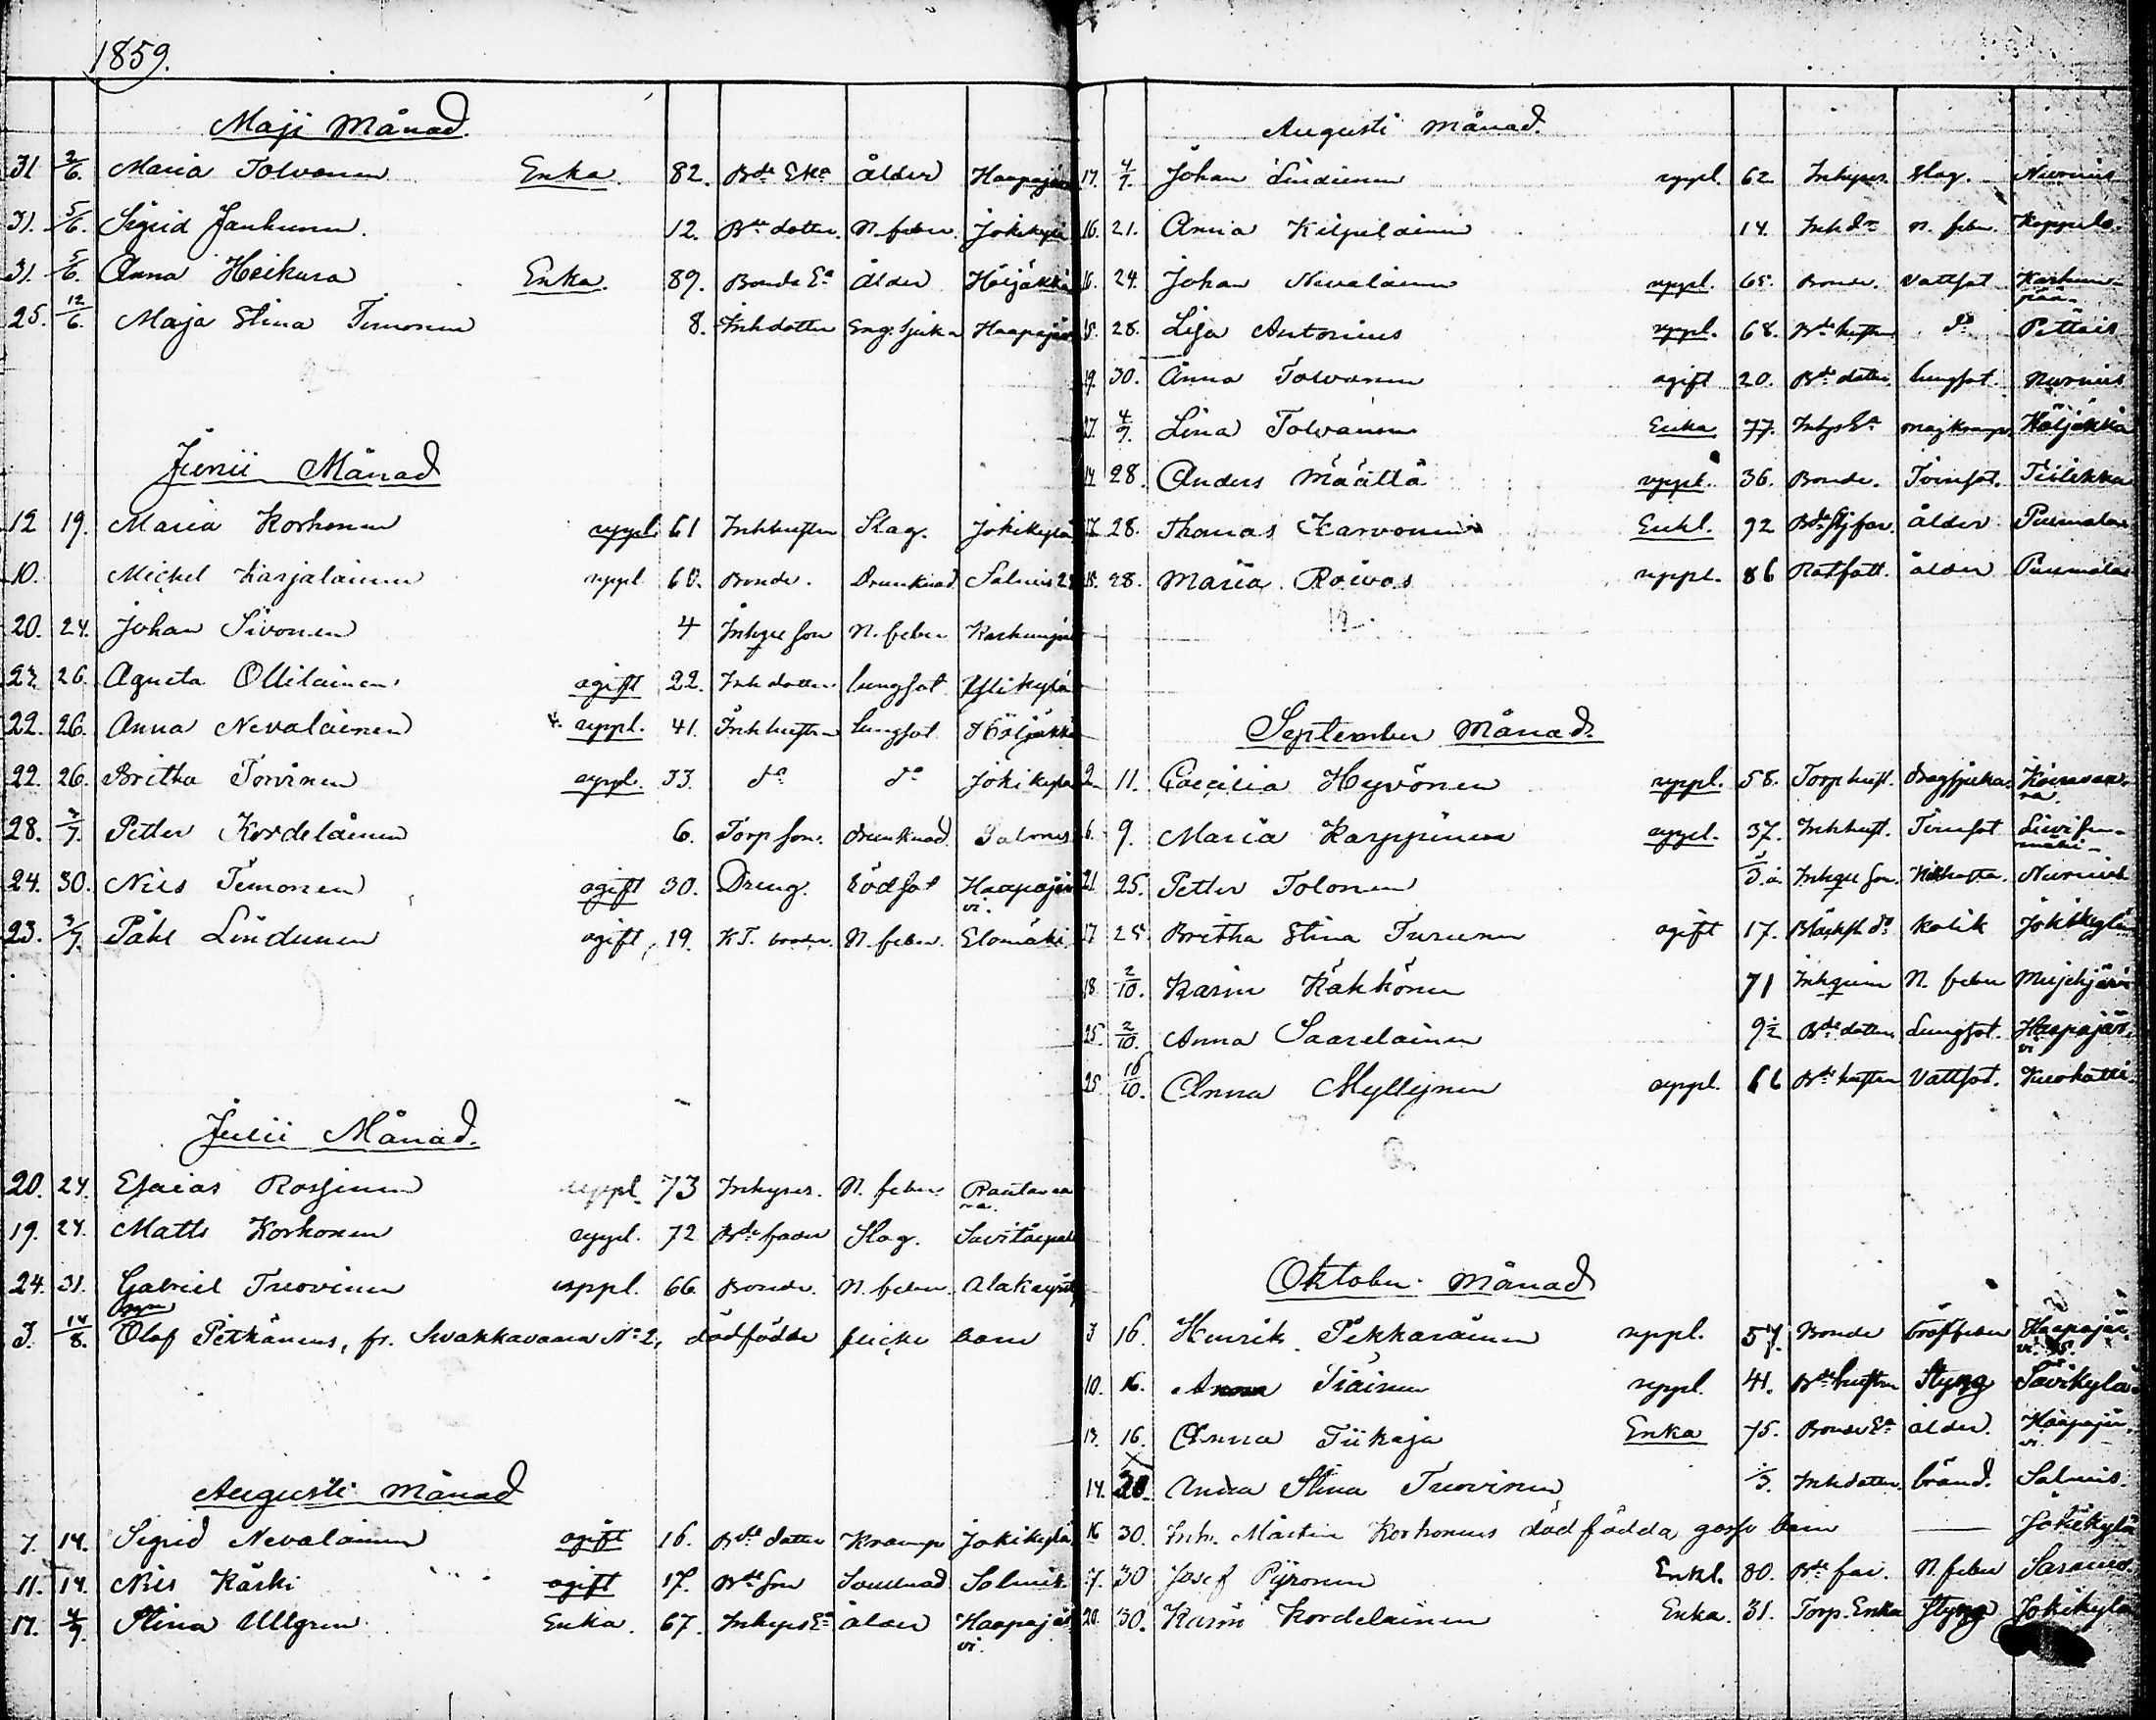 1859.
Maji Månad.
31 2/6. Maria Tolvanen Enka 82. Bde Eka Ålder Haapajär
31. 5/6. Sigrid Jauhunen. 12. Bde dotter. N. feber. Jokikylä
31. 5/6. Anna Heikura Enka. 89. Bonde Ea Ålder Höljäkkä
25. 12/6. Maja Stina Timonen 8. Inh dotter Eng. sjuka Haapajär
Junii Månad
12 19. Maria Korhonen uppl. 61 Inh hustru Slag. Jokikylä
10. Michel Karjalainen uppl. 60. Bonde. Drunknad Salmis
20. 24. Johan Sivonen 4 Inhyse son N. feber
23. 26. Agneta Ollilainen ogift 22. Inh dotter lungsot Ylikylä
22. 26. Anna Nevalainen uppl. 41. Inh hustru lungsot Höljäkkä
22. 26. Britha Torvinen uppl. 33. do do Jokikylä
28. 3/7. Petter Kordelainen 6. Torp son. drunknad
24. 30. Nils Timonen ogift 30. Dreng. Rödsot Haapajär
vi.
23. 3/7. Påhl Lindunen ogift 19. N. feber. Elomäki
Julii Månad.
20. 24. Esaias Rossinen uppl. 73 Inhyses. N. feber Rautavaa
ra.
19. 24. Matts Korhonen uppl. 72 Bde fader Slag. Savitaipal
24. 31. Gabriel Tuovinen uppl. 66. Bonde. N. feber
3. 14/8. Olof Pitkänens, fr. Kuakkavaara No 2, dödfödde flicke barn
Augusti Månad
7. 14. Sigrid Nevalainen ogift 16. Bde dotter Kramp Jokikylä
11. 14. Nils Käski ogift 17. Bde Son Salmis.
17. 4/9. Stina Ullgren Enka. 67. Inhyses Ea ålder Haapajär
vi.
Augusti Månad.
17. 4/7. Johan Lindunen uppl. 62 Inhyses. Slag. Nurmis
16. 21. Anna Kilpeläinen 14. Inh dr N. feber.
16. 24. Johan Nevalainen uppl. 65. Bonde. Vattsot
28. Lisa Antonius uppl. 68. Bde hustru do
19. 30. Anna Tolvanen ogift 20. Bde dotter. lungsot. Nurmis
27. 4/9. Lena Tolvanen Enka 77. Inhys Ea magkramp Höljäkkä
14 28. Anders Määttä uppl. 36. Bonde. Tvinsot. Tiilikka
17. 28. Thomas Karvonen Enkl. 92 ålder Puumala
18. 28. Maria Roivas uppl. 86 ålder Puumala
September Månad.
2. 11. Caecilia Hyvönen uppl. 58. Torp hust. dragsjuka. Koivuvaa-
ra.
6. 9. Maria Karppinen uppl. 37. Inh hust. Tvinsot
mäki
21. 25. Petter Tolonen Inhyse son. Kikhosta. Nurmis
17 25. Britha Stina Turunen ogift 17. kolik Jokikylä
18 2/10. Karin Kähkönen 71 N. feber Mujejärvi
25. 2/10. Anna Saarelainen 9 1/2 Bde dotter Lungsot. Haapajär-
vi
25 16/10. Anna Myllynen uppl. 66 Bde hustru Vattsot. Kuohatti.
Oktober Månad
3 16. Henrik Pekkarainen uppl. 57. Bonde bröstfeber Haapajär
vi.
10. 16. Anna Tiainen uppl. 41. Bde hustru Styng Savikylä
13. 16. Anna Tiikaja Enka 75. Bonde Ea ålder. Haapajär
vi.
14. 30. Anna Stina Tuovinen Inh dotter bränd. Salmis.
16 30. Inh. Mårten Korhonens död födda gosse barn — Jokikylä
7. 30 Josef Pyronen Enkl. 80. Bde far. N. feber Saramo.
20. 30. Karin Kordelainen Enka. 31. Torp. Enka Styng Jokikylä